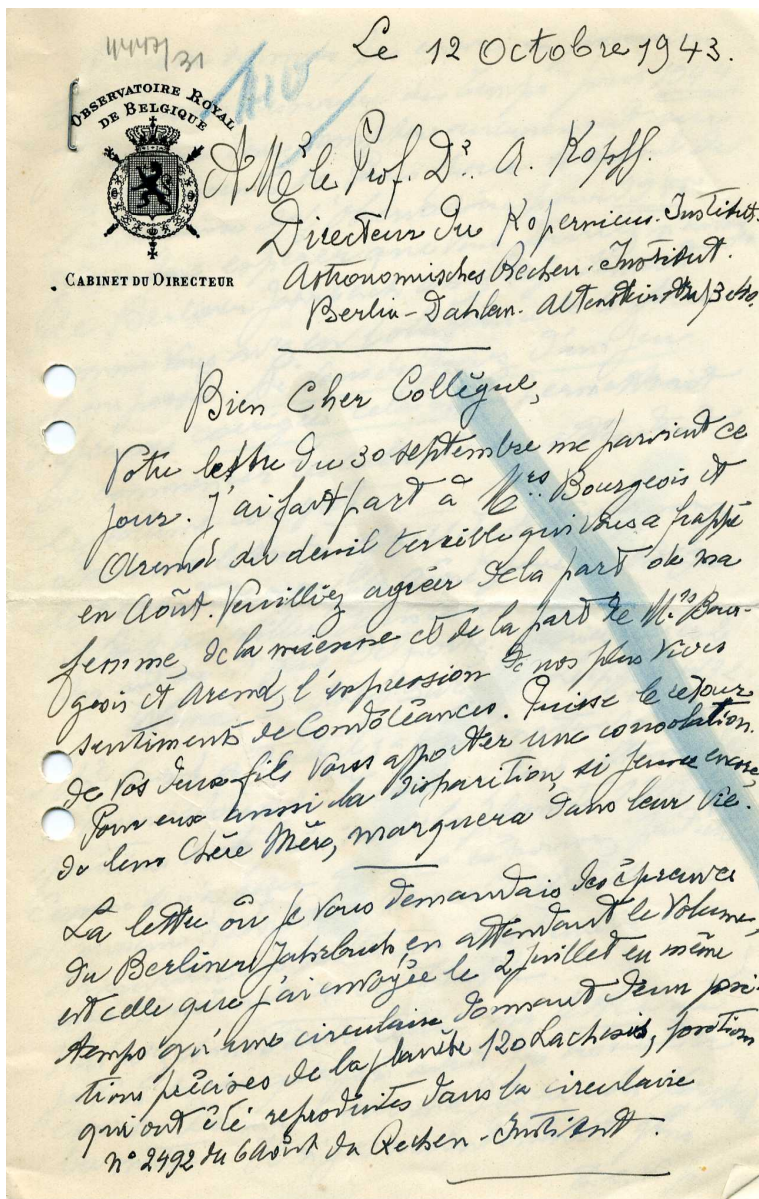 4447/31
Le 12 Octobre 1943.
OBSERVATOIRE ROYAL
DE BELGIQUE
CABINET DU DIRECTEUR
A Mr le Prof. Dr. A. Kopff.
Directeur du Kopernicus-Institut.
Astronomisches Rechen-Institut.
Berlin-Dahlem. Altenstein
Bien Cher Collègue,
Votre lettre du 30 septembre me parvient ce
jour. J'ai fait part à Mrs Bourgeois et
Arend du deuil terrible qui vous a frappé
en Août. Veuillez agréer de la part de ma
femme, de la mienne et de la part de Mrs Bour-
geois et Arend, l'expression de nos plus vives
sentiments de Condoléances. Puisse le retour
de vos deux fils vous apporter une consolation.
Pour eux aussi la disparition, si jeune encore,
de leur Chère Mère, marquera dans leur vie.
La lettre où je vous demandais des épreuves
du Berliner Jahrbuch, en attendant le Volume,
est celle que j'ai envoyée le 2 juillet en même
temps qu'une circulaire donnant deux posi-
tions précises de la planète 120 Lachesis, positions
qui ont été reproduites dans la circulaire
n° 2492 du 6 Août du Rechen-Institut.